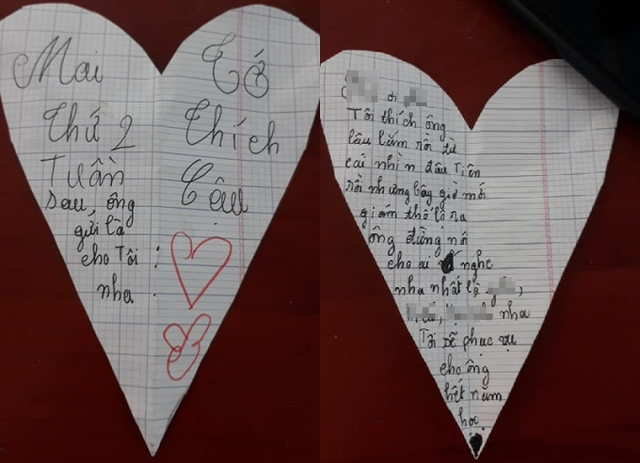 Mai
Thứ 2
Tuần
sau ông
gửi là
cho Tôi :
nha .
Tớ
Thích
Cậu
ơi
Tôi thích ông
lâu lắm rồi từ
cái nhìn đầu Tiên
rồi nhưng bây giờ mới
giám thổ lộ ra
ông đừng nó
cho ai nghe
nha nhất là
nha
Tôi sẽ phục vụ
cho ông
hết năm
học